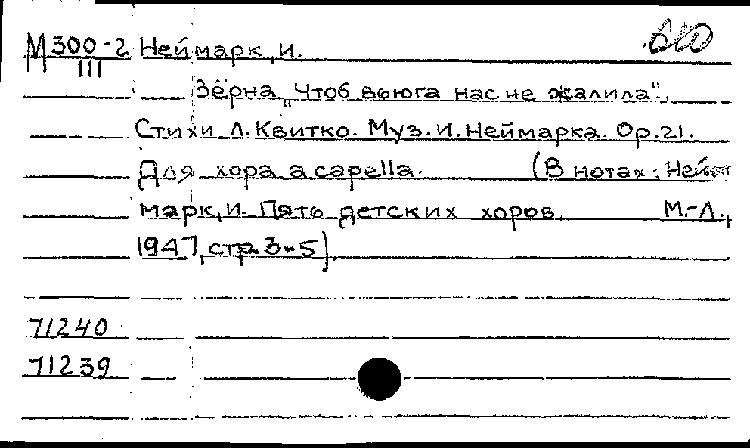 М300-2 Неймарк, И.
III
Зёрна „Чтоб вьюга нас не жалила".
Стихи Л. Квитко. Муз. И. Неймарка. Ор. 21.
Для хора a capella. (В нотах: Ней-
марк, И. Пять детских хоров. М.-Л.,
1947, стр. 3-5).
71240
71239